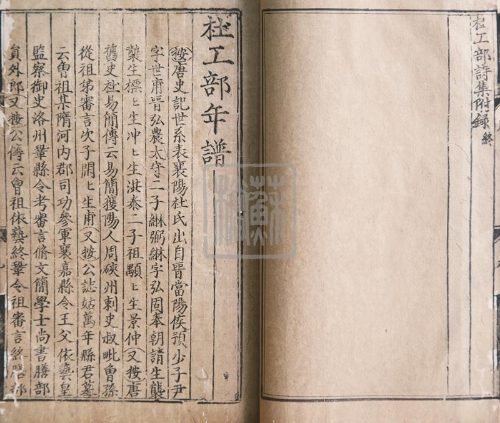 杜工部詩集附録終
杜工部年譜
按唐史記世系表襄陽杜氏出自晋當陽侯預少子尹
字世甫晋弘農太守二子綝弼綝字弘固奉朝請生襲
襲生標ヒ生冲ヒ生洪泰二子祖顒ヒ生景仲又按唐
舊史杜易簡傳云易簡襄陽人周硤州刺史叔毗曾孫
從祖弟審言次子閑ヒ生甫又按公誌姑萬年縣君墓
云曾祖某隋河内郡司功參軍襄嘉縣令王父依藝皇
監察御史洛州鞏縣令考審言脩文舘學士尚書膳部
員外郎又按公傳云曾祖依藝終鞏令祖審言終膳部